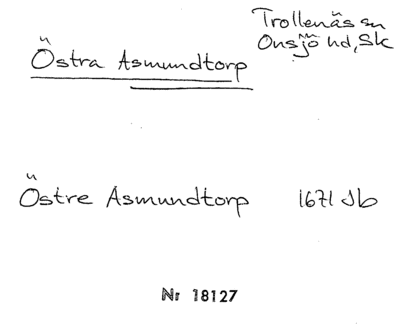 Trollenäs sn
Onsjö hd, Sk
Östra Asmundtorp
Östre Asmundtorp 1671 Jb
Nr 18127